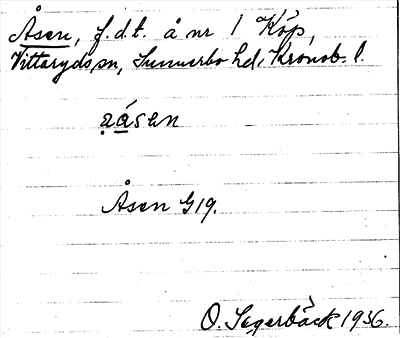 Åsen, f.d.t. å nr 1 Köp,
Vittaryds sn, Sunnerbo hd, Kronob. l.
a̤ása̱n
Åsen G19.
O. Segerbäck 1936.